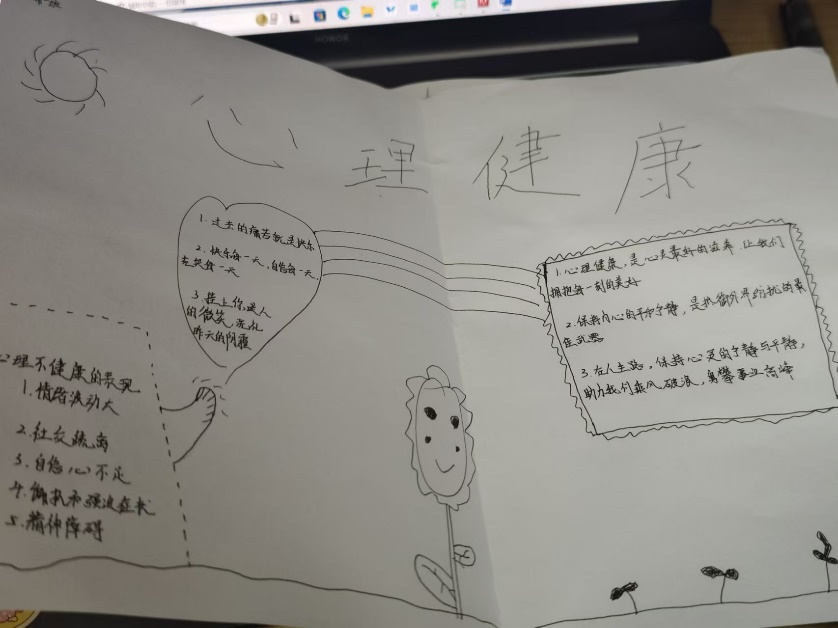 心理健康
1. 过去的痛苦就是快乐
2. 快乐每一天,自信每一天,
走好每一天
3. 挂上你迷人
的微笑,洗礼
昨天的阴霾
1. 心理健康,是心灵最好的滋养,让我们
拥抱每一刻的美好
2. 保持内心的平和宁静,是抵御外界纷扰的最
佳武器
3. 在人生路,保持心灵的宁静与平静,
助力我们乘风破浪,勇攀事业高峰
心理不健康的表现
1. 情绪波动大
2. 社交疏离
3. 自信心不足
4. 偏执和强迫症状
5. 精神障碍
HONOR